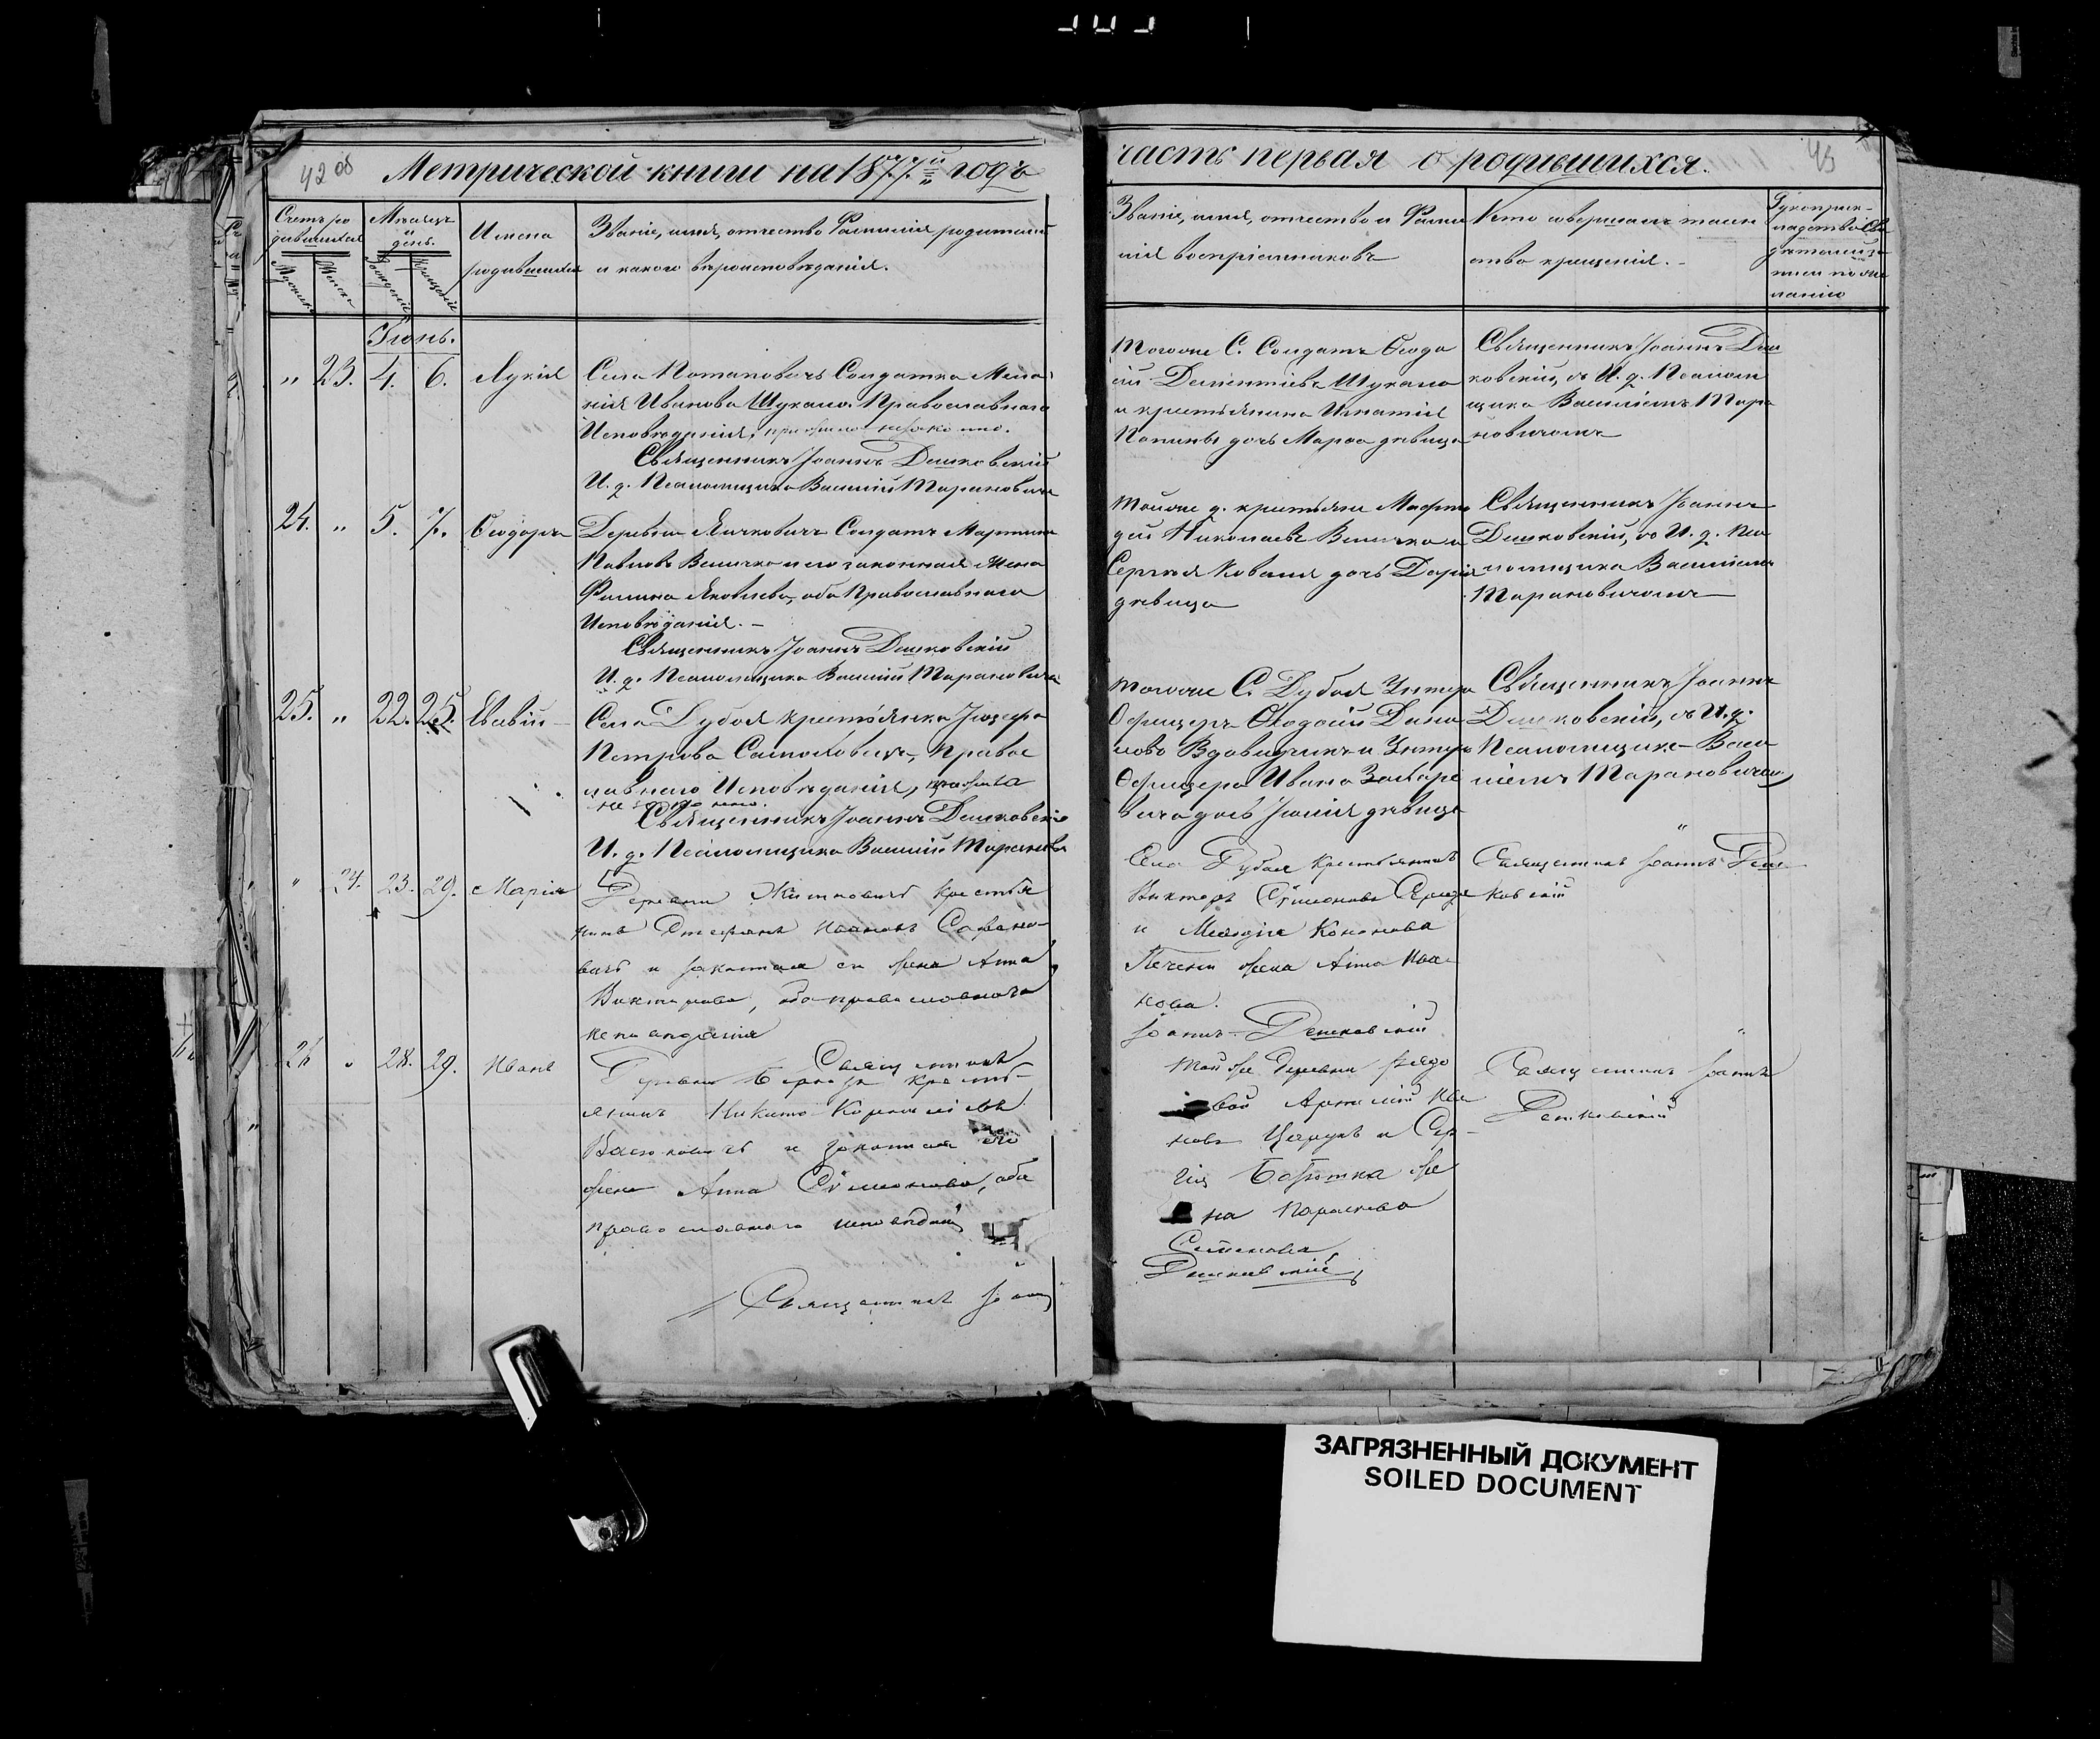 42 об
Метрической книги на 1877й годъ
Счетъ ро
дившихся
Мужеска
Женска
Мѣсяцъ
и
день.
Рожденія
Крещенія
Имена
родившихся
Званіе, имя, отчество Фамилія родителей
и какого вѣроисповѣданія.
Іюнь.
„ 23. 4. 6. Лукія
Села Потаповичъ Солдатка Мела
нія Иванова Шукало. Православнаго
Исповѣданія, прижила незаконно.
Священникъ Іоаннъ Дешковскій
И. д. Псаломщика Василій Тарановичъ
24. „ 5. 7. Ѳеодоръ
Деревни Яичковичъ Солдатъ Мартинъ
Павловъ Величко и его законная жена
Яковлева, оба Православнаго
Исповѣданія. –
Священникъ Іоаннъ Дешковскій
И. д. Псаломщика Василій Тарановичъ
25. „ 22. 25. Евсѣвій
Села Дубоя крестьянка
Петрова Православ
наго Исповѣданія, прижила
не законно.
Священникъ Іоаннъ Дешковскій
И. д. Псаломщика Василій Тарановичъ
„ 24. 23. 29. Марія
Деревни Житковичъ крестья
нинъ Стефанъ Ивановъ Сафано-
вичъ и законная его жена Анна
Викторова, оба православнаго
исповѣданія
Священникъ
26 „ 28. 29. Иванъ
Деревни кресть-
янинъ Никита Корниліевъ
Васюковичъ и законная его
жена Анна Сѵмеонова, оба
православнаго исповѣданія
Священникъ Іоаннъ
43
часть первая о родившихся.
Званіе, имя, отчество и Фами
лія воспріемниковъ
Кто совершалъ таин
ство крещенія. –
Рукопри
кладство сви
дѣтелей за
писи по же
ланію
Тогоже С. Солдатъ Ѳеодо
ій Дементіевъ Шукало
и крестьянина Игнатія
дочь Марѳа дѣвица
Священникъ Іоаннъ Деш
ковскій, съ И. д. Псалом
щика Василіемъ Тара
новичомъ
Тойже д. крестьяни
Николаевъ Величко и
Сергѣя Коваля дочь Дарія
дѣвица
Священникъ Іоаннъ
Дешковскій, съ И. д. Пса
ломщика Василіемъ
Тарановичомъ
Тогоже С. Дубоя Унтеръ
Офицеръ Ѳеодосій Дани
ловъ Вдовидчикъ и Унтеръ
Офицера Ивана Захаре
вича дочь Юлія дѣвица
Священникъ Іоаннъ
Дешковскій, съ И. д.
Псаломщика Васи
ліемъ Тарановичомъ
Села Дубоя крестьянинъ
Викторъ Сѵмеоновъ
и Меѳодія Кононова
жена Анна Ива-
нова.
Іоаннъ Дешковскій
Священникъ Іоаннъ Деш
ковскій
Той же Деревни рядо
вой Артемій Ива
новъ Царукъ и Сер-
гія же
на Параскева
Семенова
Дешковскій
Священникъ Іоаннъ
Дешковскій
ЗАГРЯЗНЕННЫЙ ДОКУМЕНТ
SOILED DOCUMENT